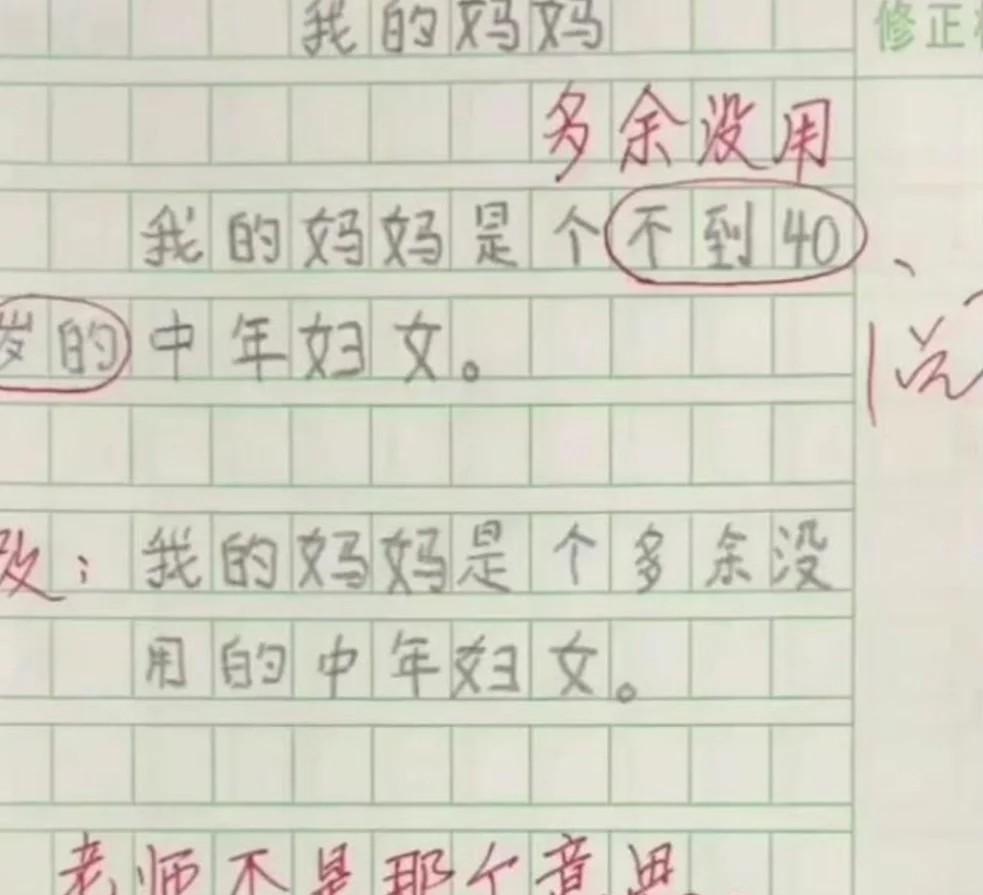 我的妈妈
修正
多余没用
我的妈妈是个不到40
岁的中年妇女。
改：我的妈妈是个多余没
用的中年妇女。
老师不是那个意思